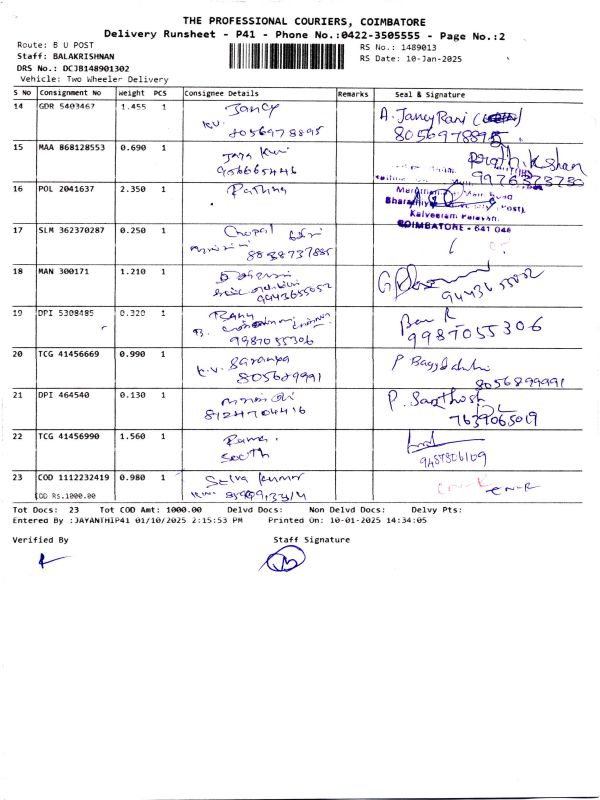 THE PROFESSIONAL COURIERS, COIMBATORE
Delivery Runsheet - P41 - Phone No.:0422-3505555 - Page No.:2
Route: B U POST
RS No.: 1489013
Staff: BALAKRISHNAN
RS Date: 10-Jan-2025
DRS No.: DCJB148901302
Vehicle: Two Wheeler Delivery
S No Consignment No Weight PCS Consignee Details Remarks Seal & Signature
14 GDR 5403467 1.455 1 Jancy A. Jancy Rani
K.V. 8056978895 8056978895
15 MAA 868128553 0.690 1 Jaya Prathikshan
9566665446 9976373750
16 POL 2041637 2.350 1 Rathna
Bharathiyar Post,
Kalveeram Palayam,
COIMBATORE - 641 046
17 SLM 362370287 0.250 1 Gopal
8838737885
18 MAN 300171 1.210 1
9443655052 9443655052
19 DPI 5308485 0.320 1
9987055306 9987055306
20 TCG 41456669 0.990 1 K.V. Saranya P
8056899991 8056899991
21 DPI 464540 0.130 1 P. Santhosh
8124704416 7639065019
22 TCG 41456990 1.560 1 Rama.
9487506109
23 COD 1112232419 0.980 1 Selva Kumar
COD RS.1000.00
Tot Docs: 23 Tot COD Amt: 1000.00 Delvd Docs: Non Delvd Docs: Delvy Pts:
Entered By :JAYANTHIP41 01/10/2025 2:15:53 PM Printed On: 10-01-2025 14:34:05
Verified By Staff Signature